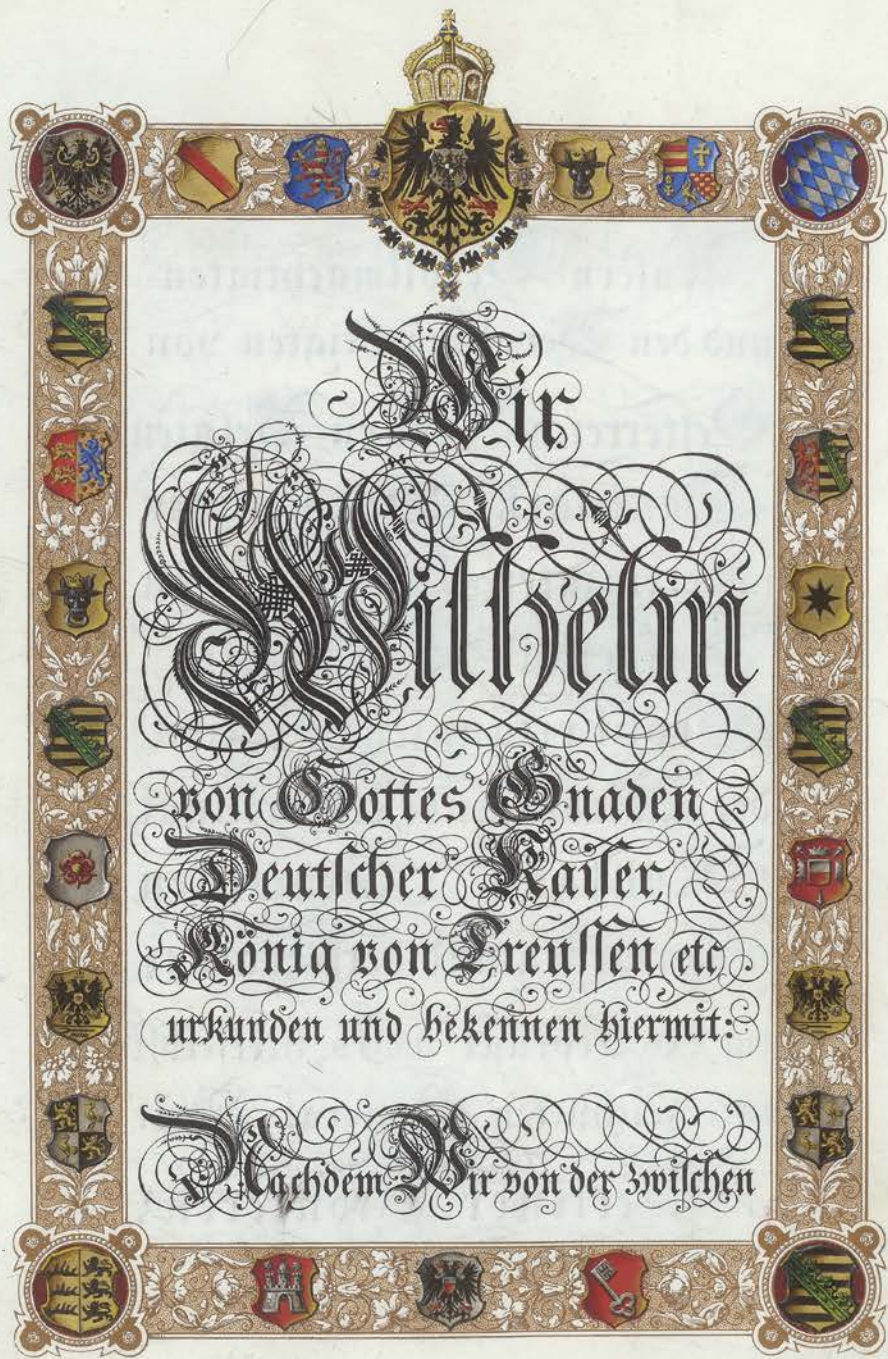 Wir
Wilhelm
von Gottes Gnaden
Deutſcher Kaiſer,
König von Preuſſen etc
urkunden und bekennen hiermit:
Nachdem Wir von der zwiſchen